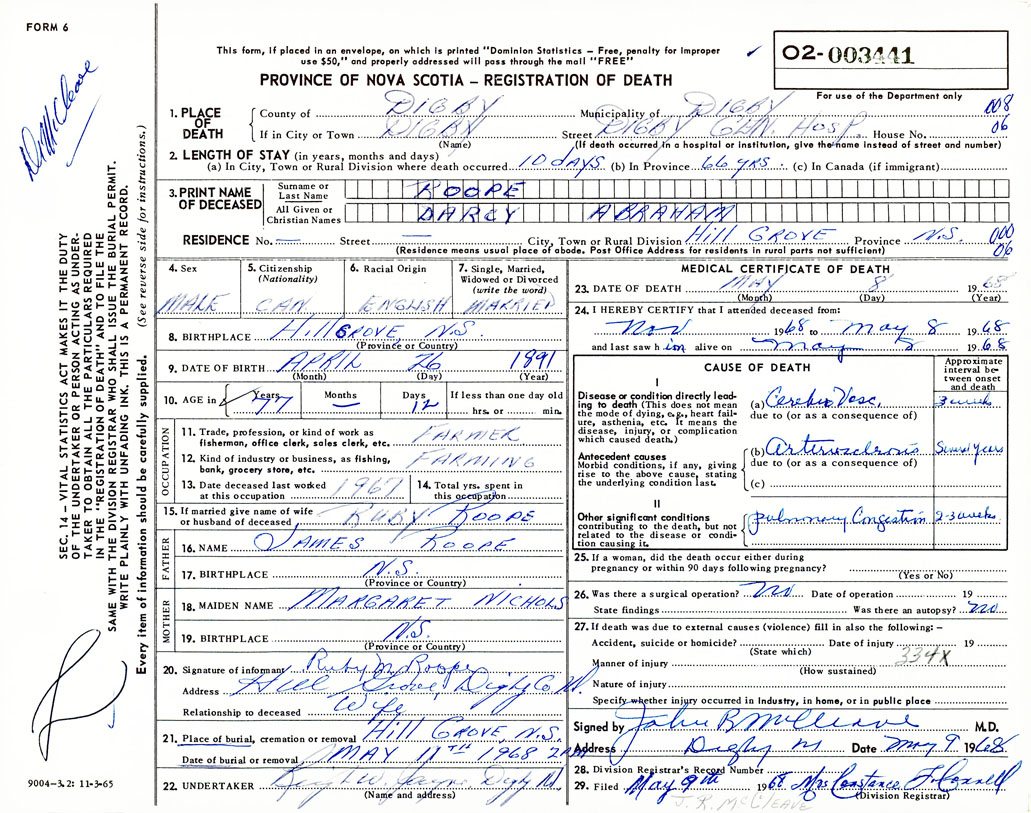 FORM 6
Dr McCleave
This form, if placed in an envelope, on which is printed "Dominion Statistics – Free, penalty for improper
use $50," and properly addressed will pass through the mail "FREE"
PROVINCE OF NOVA SCOTIA – REGISTRATION OF DEATH
O2-003441
For use of the Department only
008
06
1. PLACE OF DEATH
County of DIGBY Municipality of DIGBY
If in City or Town DIGBY Street DIGBY GEN. HOSP House No.
(Name) (If death occurred in a hospital or institution, give the name instead of street and number)
2. LENGTH OF STAY (in years, months and days)
(a) In City, Town or Rural Division where death occurred 10 days (b) In Province 66 yrs (c) In Canada (if immigrant)
3. PRINT NAME OF DECEASED
Surname or Last Name ROOPE
All Given or Christian Names DARCY ABRAHAM
RESIDENCE No. — Street — City, Town or Rural Division Hill GROVE Province N.S.
000
06
(Residence means usual place of abode. Post Office Address for residents in rural parts not sufficient)
4. Sex
MALE
5. Citizenship
(Nationality)
CAN
6. Racial Origin
ENGLISH
7. Single, Married,
Widowed or Divorced
(write the word)
MARRIED
8. BIRTHPLACE Hill GROVE, N.S.
(Province or Country)
9. DATE OF BIRTH APRIL 26 1891
(Month) (Day) (Year)
10. AGE in
Years 77
Months —
Days 12
If less than one day old
hrs. or min.
OCCUPATION
11. Trade, profession, or kind of work as
fisherman, office clerk, sales clerk, etc. FARMER
12. Kind of industry or business, as fishing,
bank, grocery store, etc. FARMING
13. Date deceased last worked
at this occupation 1967
14. Total yrs. spent in
this occupation
15. If married give name of wife
or husband of deceased RUBY ROOPE
FATHER
16. NAME JAMES ROOPE
17. BIRTHPLACE N.S.
(Province or Country)
MOTHER
18. MAIDEN NAME MARGARET NICHOLS
19. BIRTHPLACE N.S.
(Province or Country)
20. Signature of informant Ruby M Roope
Address Hill Grove, Digby Co N.S.
Relationship to deceased Wife
21. Place of burial, cremation or removal Hill GROVE, N.S.
Date of burial or removal MAY 11TH 1968 2 PM
22. UNDERTAKER Jayne Digby N.S.
(Name and address)
MEDICAL CERTIFICATE OF DEATH
23. DATE OF DEATH MAY 8 1968
(Month) (Day) (Year)
24. I HEREBY CERTIFY that I attended deceased from:
Nov 1968 to May 8 1968
and last saw him alive on May 8 1968
CAUSE OF DEATH
Approximate
interval be-
tween onset
and death
I
Disease or condition directly lead-
ing to death (This does not mean
the mode of dying, e.g., heart fail-
ure, asthenia, etc. It means the
disease, injury, or complication
which caused death.)
(a) Cerebro Vasc. 3 weeks
due to (or as a consequence of)
Antecedent causes
Morbid conditions, if any, giving
rise to the above cause, stating
the underlying condition last.
(b) Arteriosclerosis Several years
due to (or as a consequence of)
(c)
II
Other significant conditions
contributing to the death, but not
related to the disease or condi-
tion causing it.
pulmonary Congestion 2-3 weeks
25. If a woman, did the death occur either during
pregnancy or within 90 days following pregnancy?
(Yes or No)
26. Was there a surgical operation? No Date of operation 19
State findings Was there an autopsy? No
27. If death was due to external causes (violence) fill in also the following: –
Accident, suicide or homicide? Date of injury 19
(State which)
334X
Manner of injury
(How sustained)
Nature of injury
Specify whether injury occurred in Industry, in home, or in public place
Signed by John R McCleave M.D.
Address Digby NS Date May 9 1968
28. Division Registrar's Record Number
29. Filed May 9th 1968 Mrs Constance Connell
(Division Registrar)
J. R. McCLEAVE
SEC. 14 – VITAL STATISTICS ACT MAKES IT THE DUTY
OF THE UNDERTAKER OR PERSON ACTING AS UNDER-
TAKER TO OBTAIN ALL THE PARTICULARS REQUIRED
IN THE "REGISTRATION OF DEATH" AND TO FILE THE
SAME WITH THE DIVISION REGISTRAR WHO SHALL ISSUE THE BURIAL PERMIT.
WRITE PLAINLY WITH UNFADING INK. THIS IS A PERMANENT RECORD.
Every item of information should be carefully supplied. (See reverse side for instructions.)
9004-3.2: 11-3-65